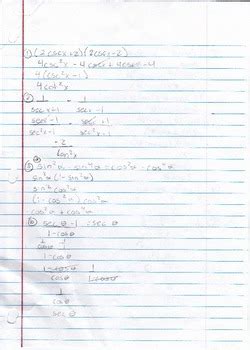 ① (2cscx+2)(2cscx-2)
4csc²x - 4cscx + 4cscx - 4
4(csc²x-1)
4cot²x
② 1/(secx+1) - 1/(secx-1)
(secx-1)/(sec²x-1) - (secx+1)/(sec²x-1)
-2/tan²x
⑤ sin²θ - sin⁴θ = cos²θ - cos⁴θ
sin²θ(1-sin²θ)
sin²θ cos²θ
(1-cos²θ)cos²θ
⑥ (secθ-1)/(1-cosθ) = secθ
1-cosθ
(1-cosθ)/cosθ
1/cosθ
secθ